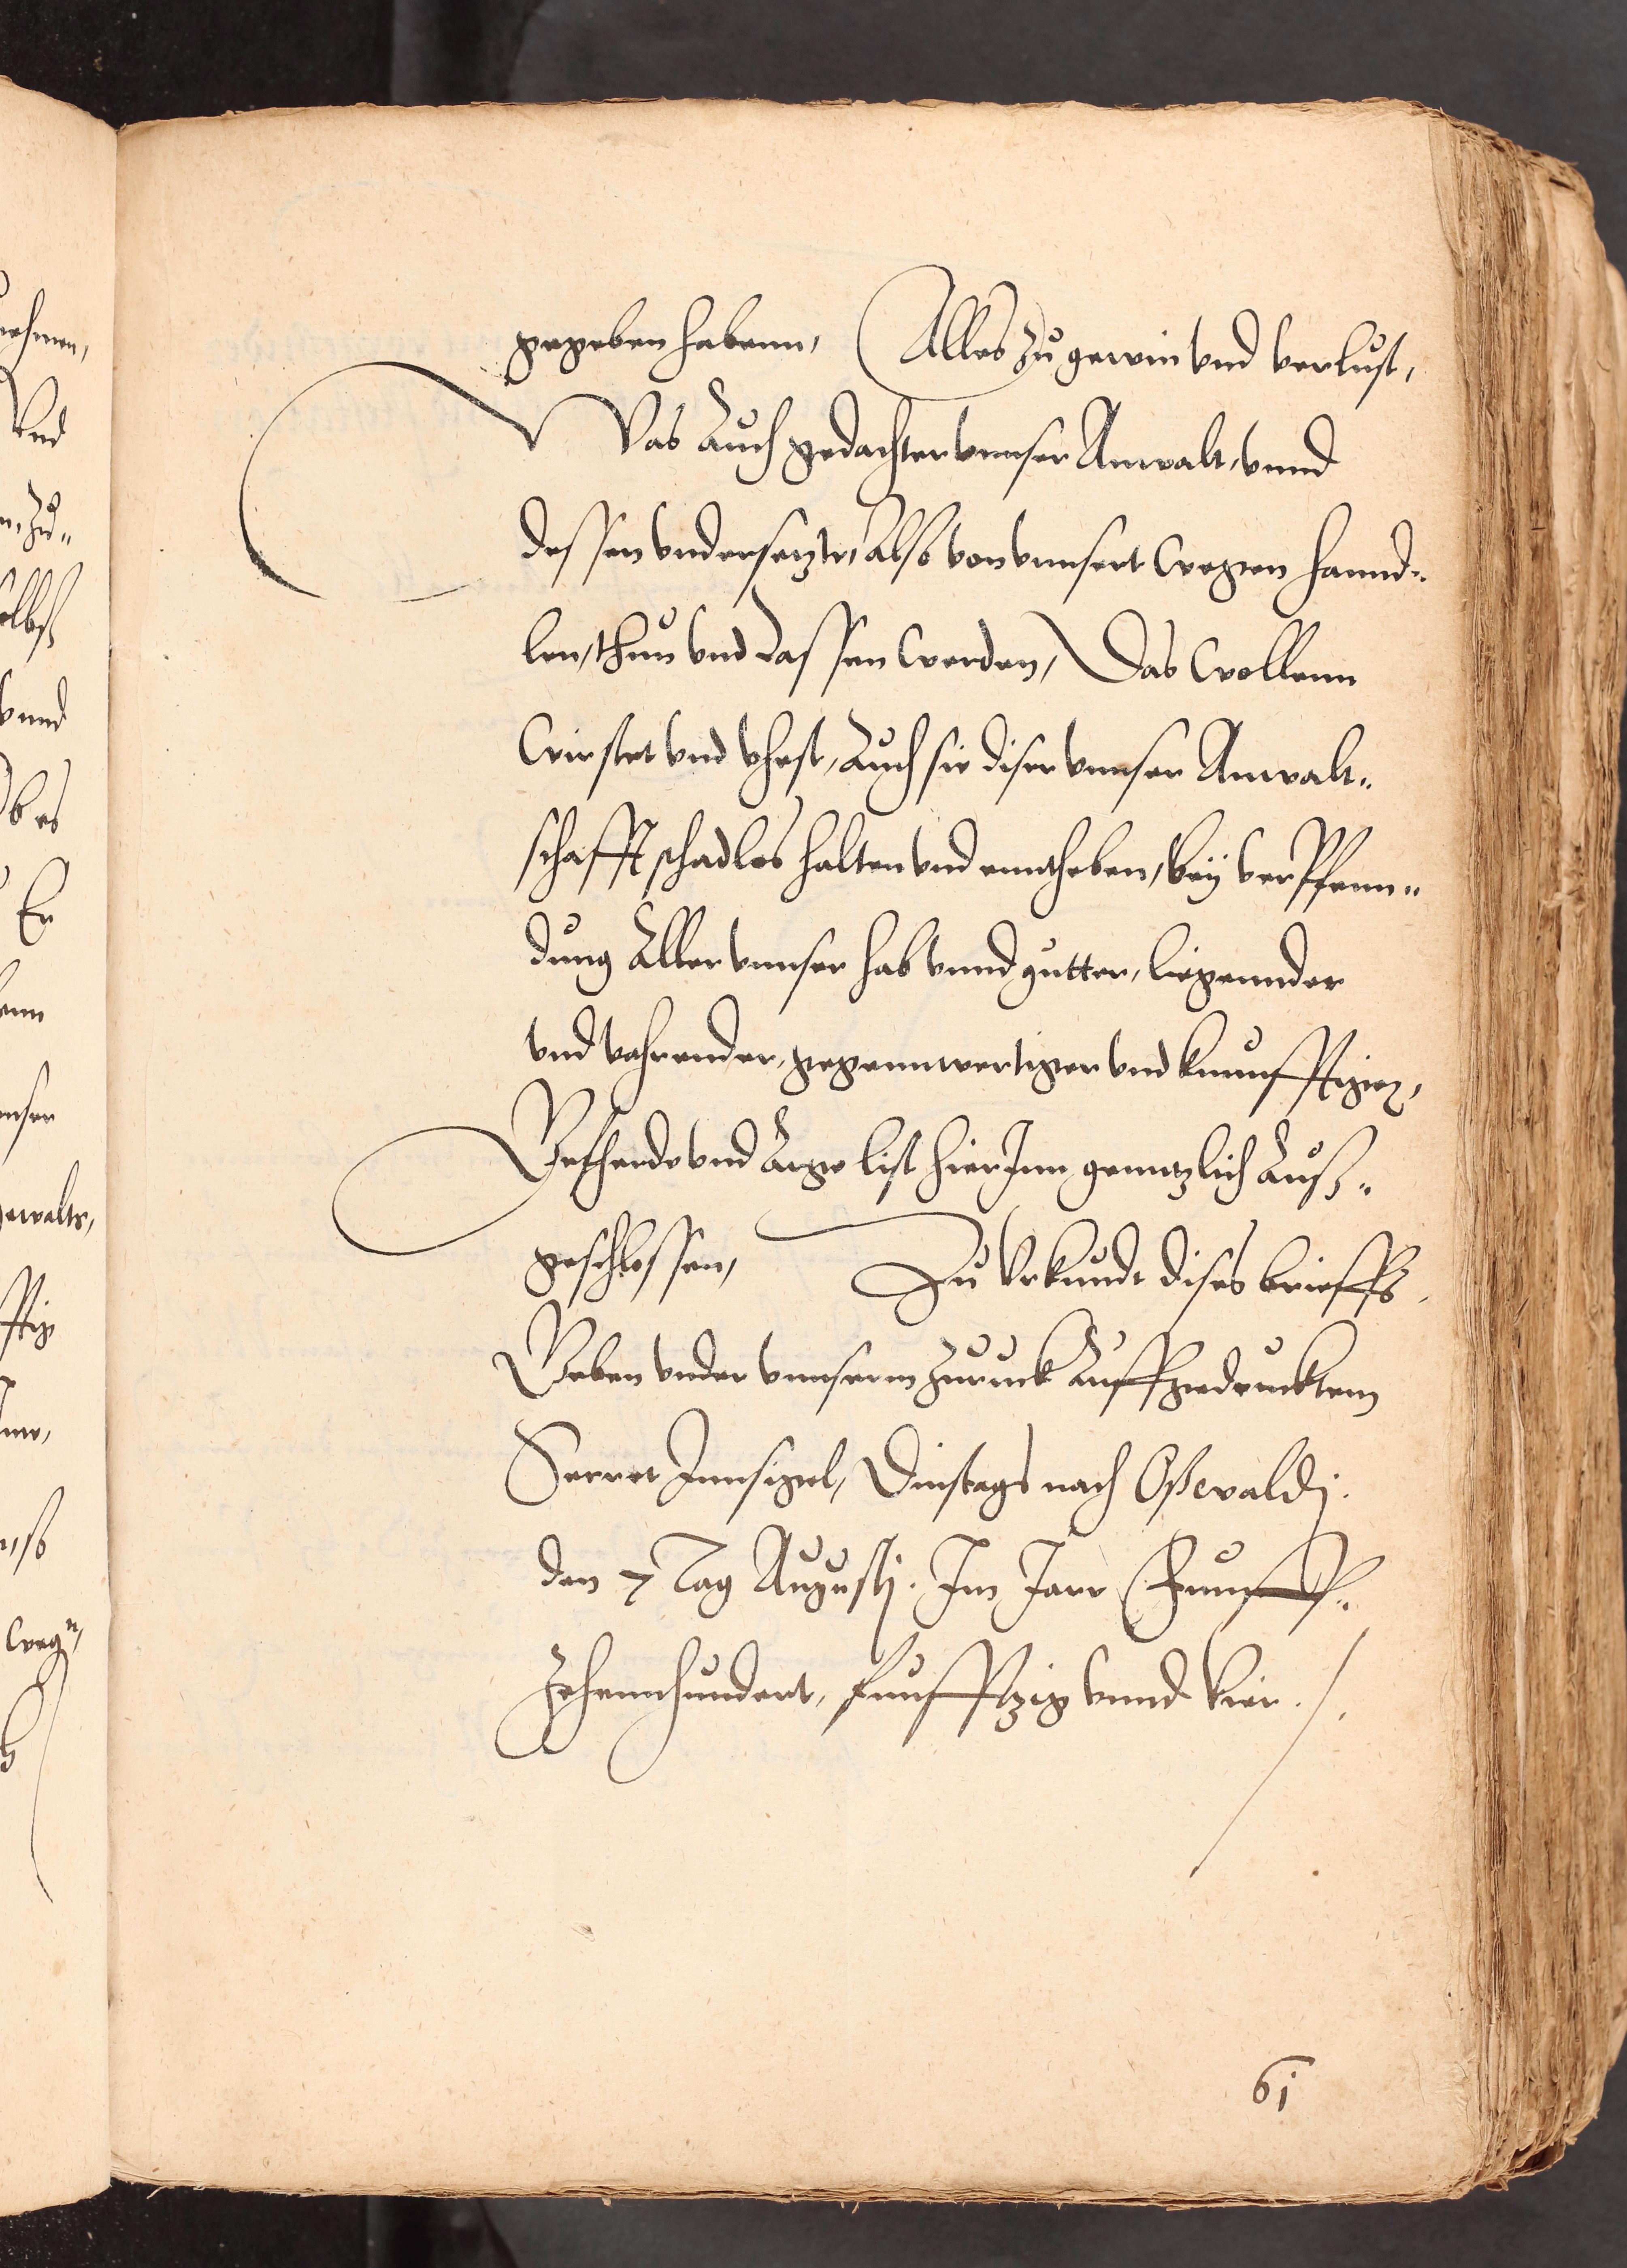 nehmen,
Vnd
n, zu„
selbst
vnnd
Ob es
Er
enn
nnser
gewalts,
fftig
nnw,
niß
wegn,
gegeben habenn, Alles zu gewin vnd verlust,
Was Auch gedachter vnnser Anwalt, vnnd
dessen vndersetzte, also von vnnsert wegen hannd„
len, thun vnd Lassen werden, Das wollenn
wir stet vnd vhest, Auch sie diser vnnser Anwalt„
schafft schadlos halten vnd enntheben, bey verpfenn„
dung Aller vnnser hab vnnd gutter, ligennder
vnd vahrender, gegennwertiger vnd kunnfftiger,
Geſherde vnd Arge list hier Inn genntzlich Auß„
geschlossen, Zu Vrkundt dises brieffs.
Geben vnder vnnserm zuruck Auffgedrucktem
Secret Innsigel, Dinstags nach Oßwaldj.
den 7 Tag Augustj. Im Jare Funnff„
zehennhundert, funfftzig vnnd vier./.
61